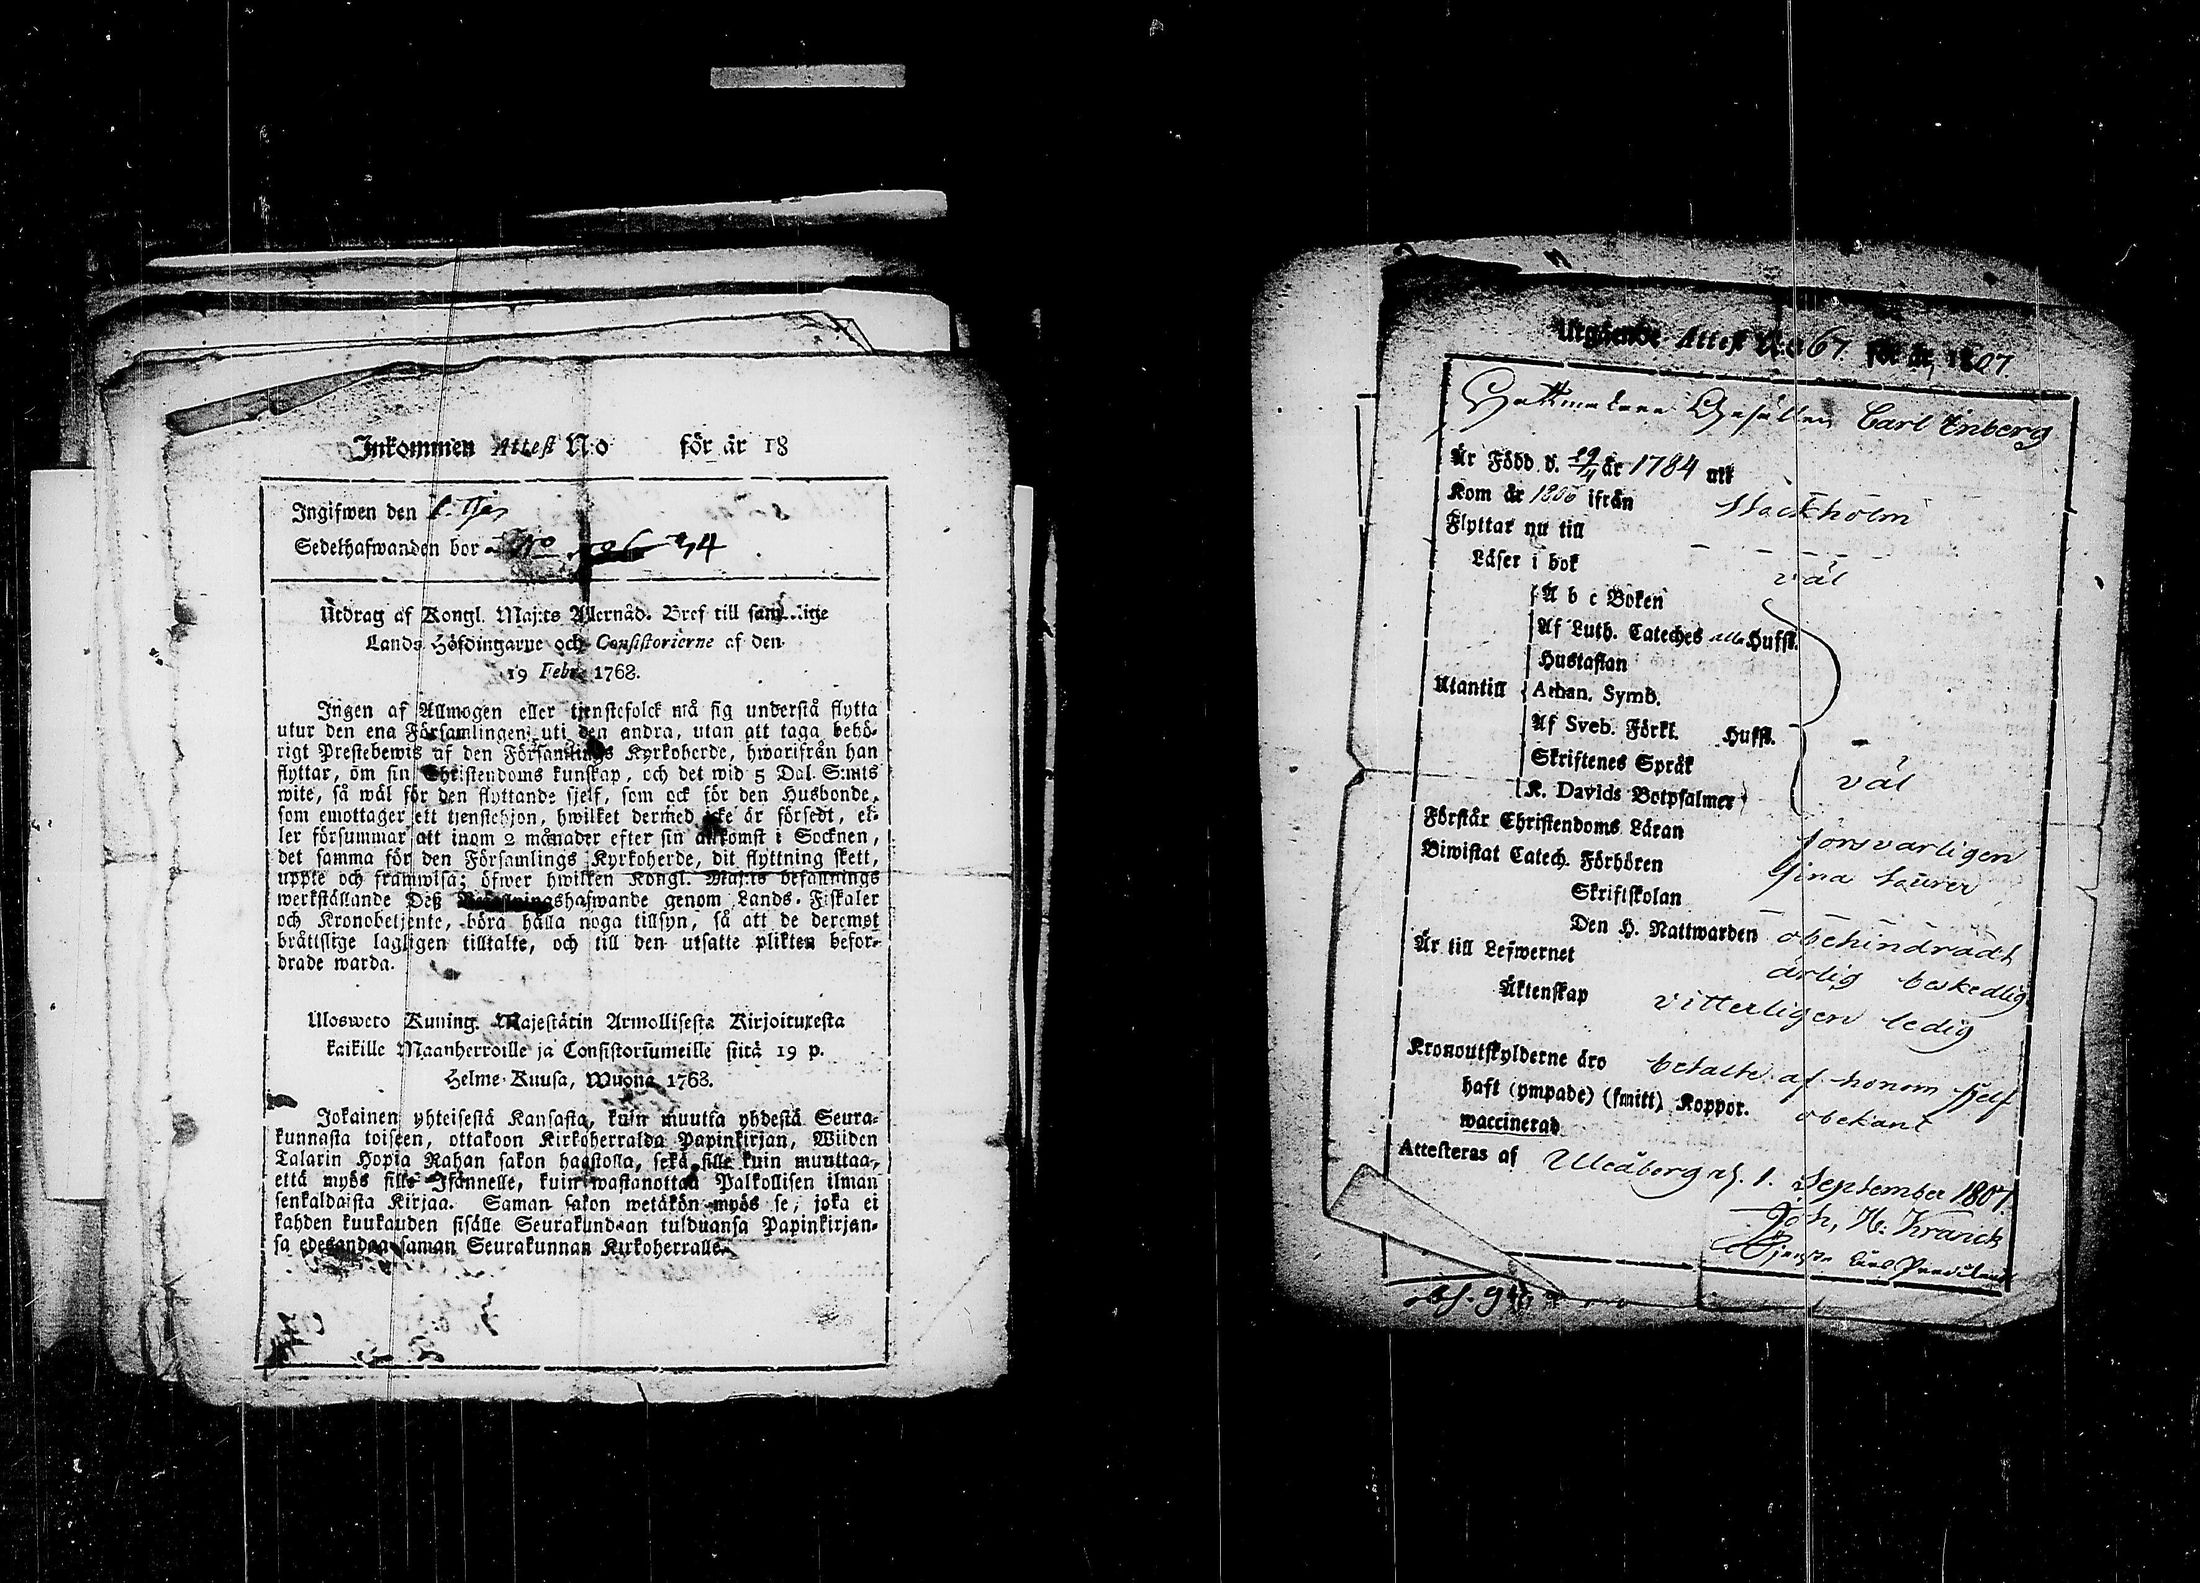 Inkommen Attest N:o för år 18
Ingifwen den
Sedelhafwanden bor
Utdrag af Kongl. Maj:ts Allernåd. Bref till samtlige
Lands Höfdingarne och Consistorierne af den
19 Febr. 1768.
Ingen af Allmogen eller tjenstefolck må sig understå flytta
utur den ena Församlingen uti den andra, utan att taga behö-
rigt Prestebewis af den Församlings Kyrkoherde, hwarifrån han
flyttar, öm sin Christendoms kunskap, och det wid 5 Dal. S:mts
wite, så wäl för den flyttande sjelf, som ock för den Husbonde,
som emottager ett tjenstehjon, hwilket dermed icke är försedt, el-
ler försummar att inom 2 månader efter sin ankomst i Socknen,
det samma för den Församlings Kyrkoherde, dit flyttning skett,
uppte och framwisa; öfwer hwilken Kongl. Maj:ts befallnings
werkställande Deß Befallningshafwande genom Lands-Fiskaler
och Kronobetjente, böra hålla noga tillsyn, så att de deremot
bråttslige lagligen tilltalte, och till den utsatte plikten befor-
drade warda.
Ulosweto Kuning. Majestätin Armollisesta Kirjoituxesta
kaikille Maanherroille ja Consistoriumeille siitä 19 p.
Helme-Kuusa, Wuona 1768.
Jokainen yhteisestä Kansasta, kuin muutta yhdestä Seura-
kunnasta toiseen, ottakoon Kirkoherralda Papinkirjan, Wiiden
Talarin Hopia Rahan sakon haastolla, sekä sille kuin muuttaa,
että myös sille Isännelle, kuin wastanottaa Palkollisen ilman
senkaldaista Kirjaa. Saman sakon wetäkön myös se, joka ei
kahden kuukauden sisälle Seurakundaan tulduansa Papinkirjan-
sa edesandaa saman Seurakunnan Kirkoherralle.
Utgående Attest N:o 67 för år 1807.
Hattmakare Gesällen Carl Enberg
Är Född d. 29/4 år 1784 uti
Kom år 1806 ifrån Stockholm
Flyttar nu till
Läser i bok väl
A b c Boken
Af Luth. Cateches alla Hufst.
Hustaflan
Utantill Athan. Symb.
Af Sveb. Förkl. Hufst.
Skriftenes Språk väl
K. Davids Botpsalmer
Förstår Christendoms Läran försvarligen
Biwistat Catech. Förhören
Skriftskolan
Den H. Nattwarden obehindradt
Är till Lefwernet ärlig beskedlig
Äktenskap vitterligen ledig
Kronoutskylderne äro betalte af honom sjelf
haft (ympade) (smitt) Koppor. obekant
waccinerad
Attesteras af Uleåborg d. 1. September 1807.
Joh. H. Kranck